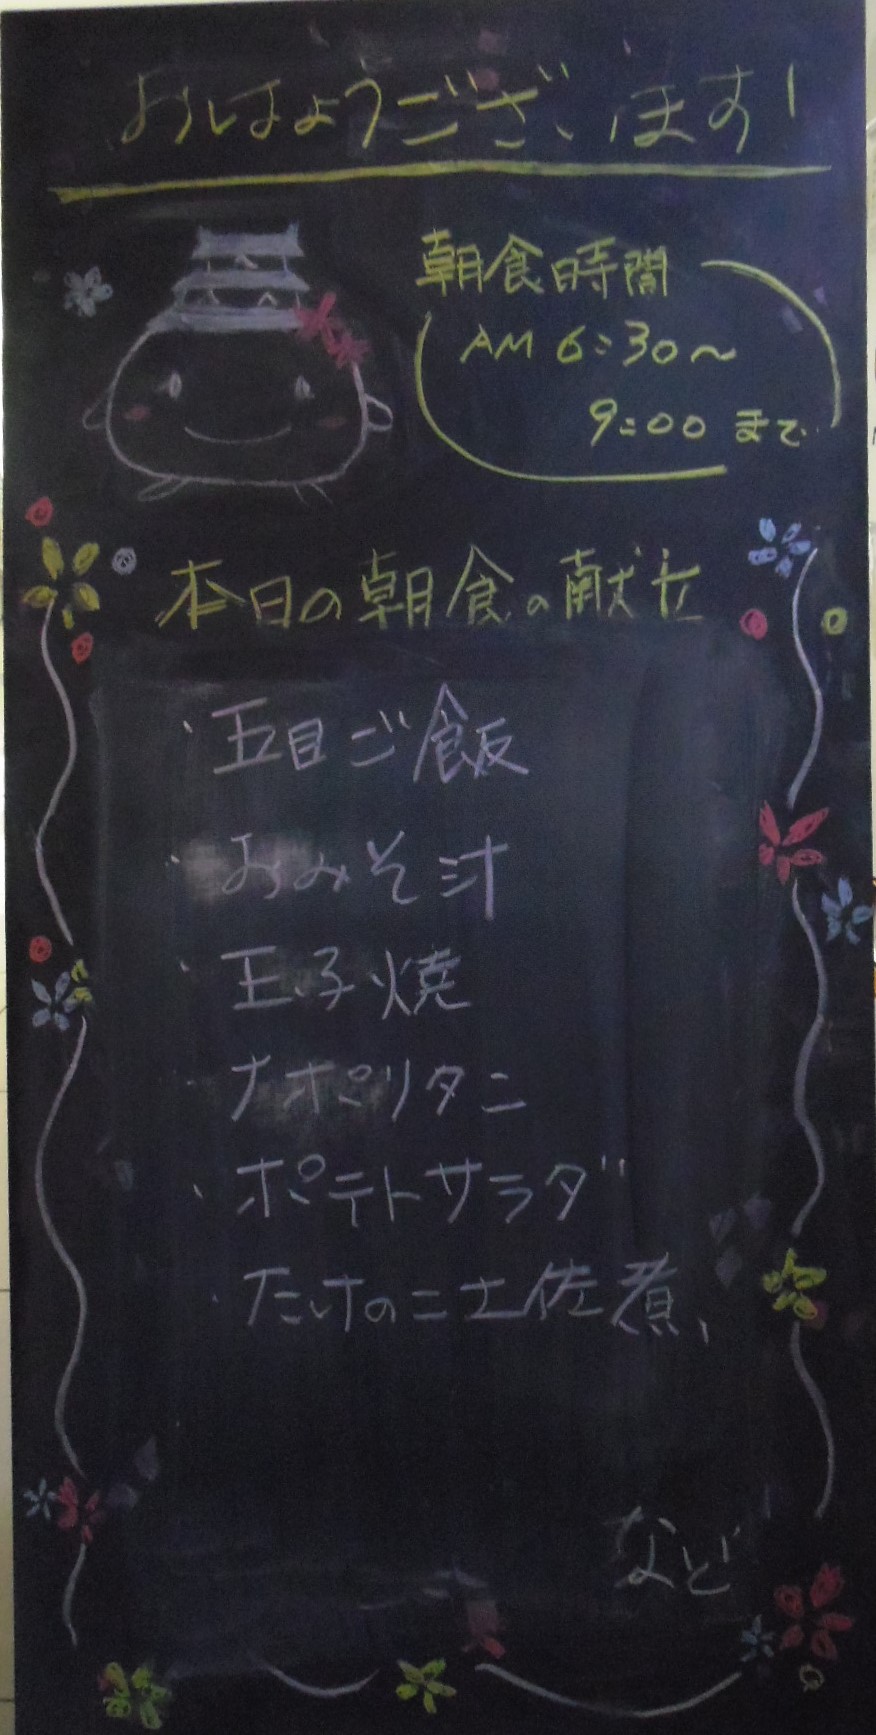 おはようございます!
朝食時間
AM 6:30〜
9:00 まで
本日の朝食の献立
・五目ご飯
・おみそ汁
・玉子焼
・ナポリタン
・ポテトサラダ
・たけのこ土佐煮
など